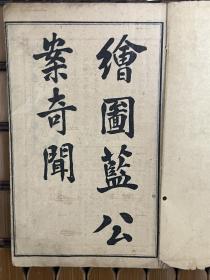 繪圖藍公
案奇聞